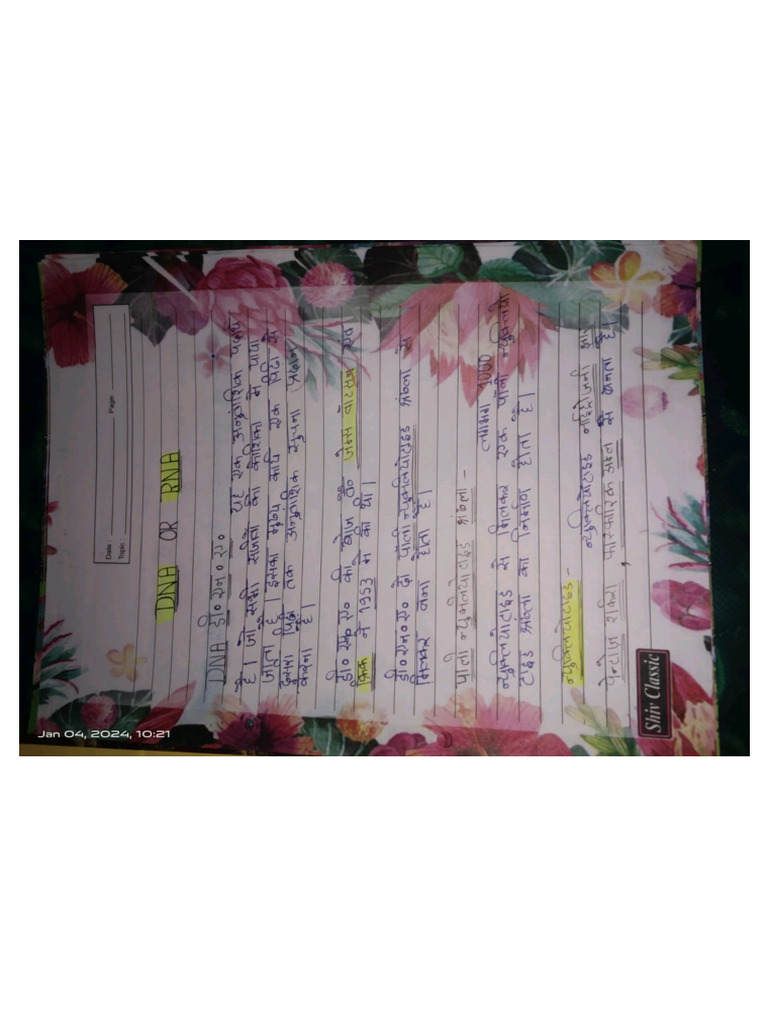 Date
Page
Topic:
DNA OR RNA
DNA डी०एन०ए०
यह एक अनुवांशिक पदार्थ
है। जो सभी सजिवो की कोशिका मे पाया
जाता है। इसका मुख्य कार्य एक पिढी से
दुसरी पिढी तक अनुवांशिक सुचना प्रदान
करना है।
डी०एन०ए० की खोज डॉ० जेम्स वॉटसन एव
क्रिक ने 1953 मे की थी।
डी०एन०ए० दो पॉली न्युक्लियोटाइड श्रंखला से
मिलकर बना होता है।
पाली न्युक्लियोटाइड श्रंखला-
लगभग 1000
न्युक्लियोटाइड से मिलकर एक पॉली न्युक्लियो
टाइड श्रंखला का निर्माण होता है।
न्युक्लियोटाइड-
न्युक्लियोटाइड नाईट्रोजनी क्षार
पेन्टोज शर्करा, फास्फोरिक अम्ल से बनता है।
Shiv Classic
Jan 04, 2024, 10:21